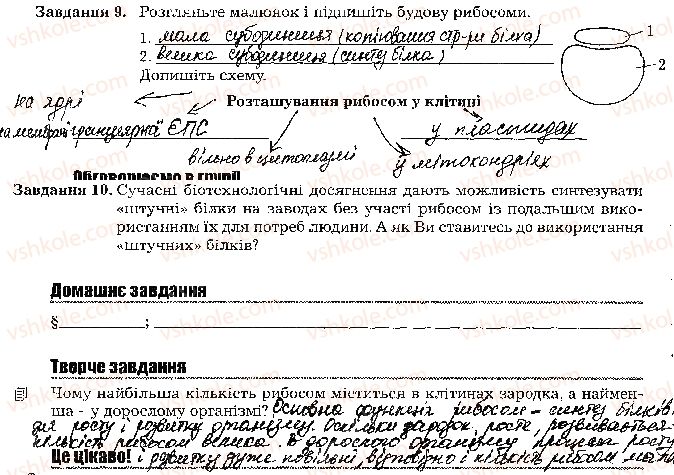 Завдання 9. Розгляньте малюнок і підпишіть будову рибосоми.
1. мала субодиниця (копіювання стр-ри білка)
2. велика субодиниця (синтез білка)
1
2
Допишіть схему.
на ядрі
Розташування рибосом у клітині
на мембрані гранулярної ЄПС
у пластидах
вільно в цитоплазмі
у мітохондріях
Обговорюємо в групі
Завдання 10. Сучасні біотехнологічні досягнення дають можливість синтезувати
«штучні» білки на заводах без участі рибосом із подальшим вико-
ристанням їх для потреб людини. А як Ви ставитесь до використання
«штучних» білків?
Домашнє завдання
§ ;
Творче завдання
Чому найбільша кількість рибосом міститься в клітинах зародка, а наймен-
ша - у дорослому організмі? Основна функція рибосом – синтез білків
для росту і розвитку організму. Оскільки зародок росте, розвивається
кількість рибосом велика. В дорослого організму процеси росту
Це цікаво! і розвитку дуже повільні, відповідно і кількість рибосом мала